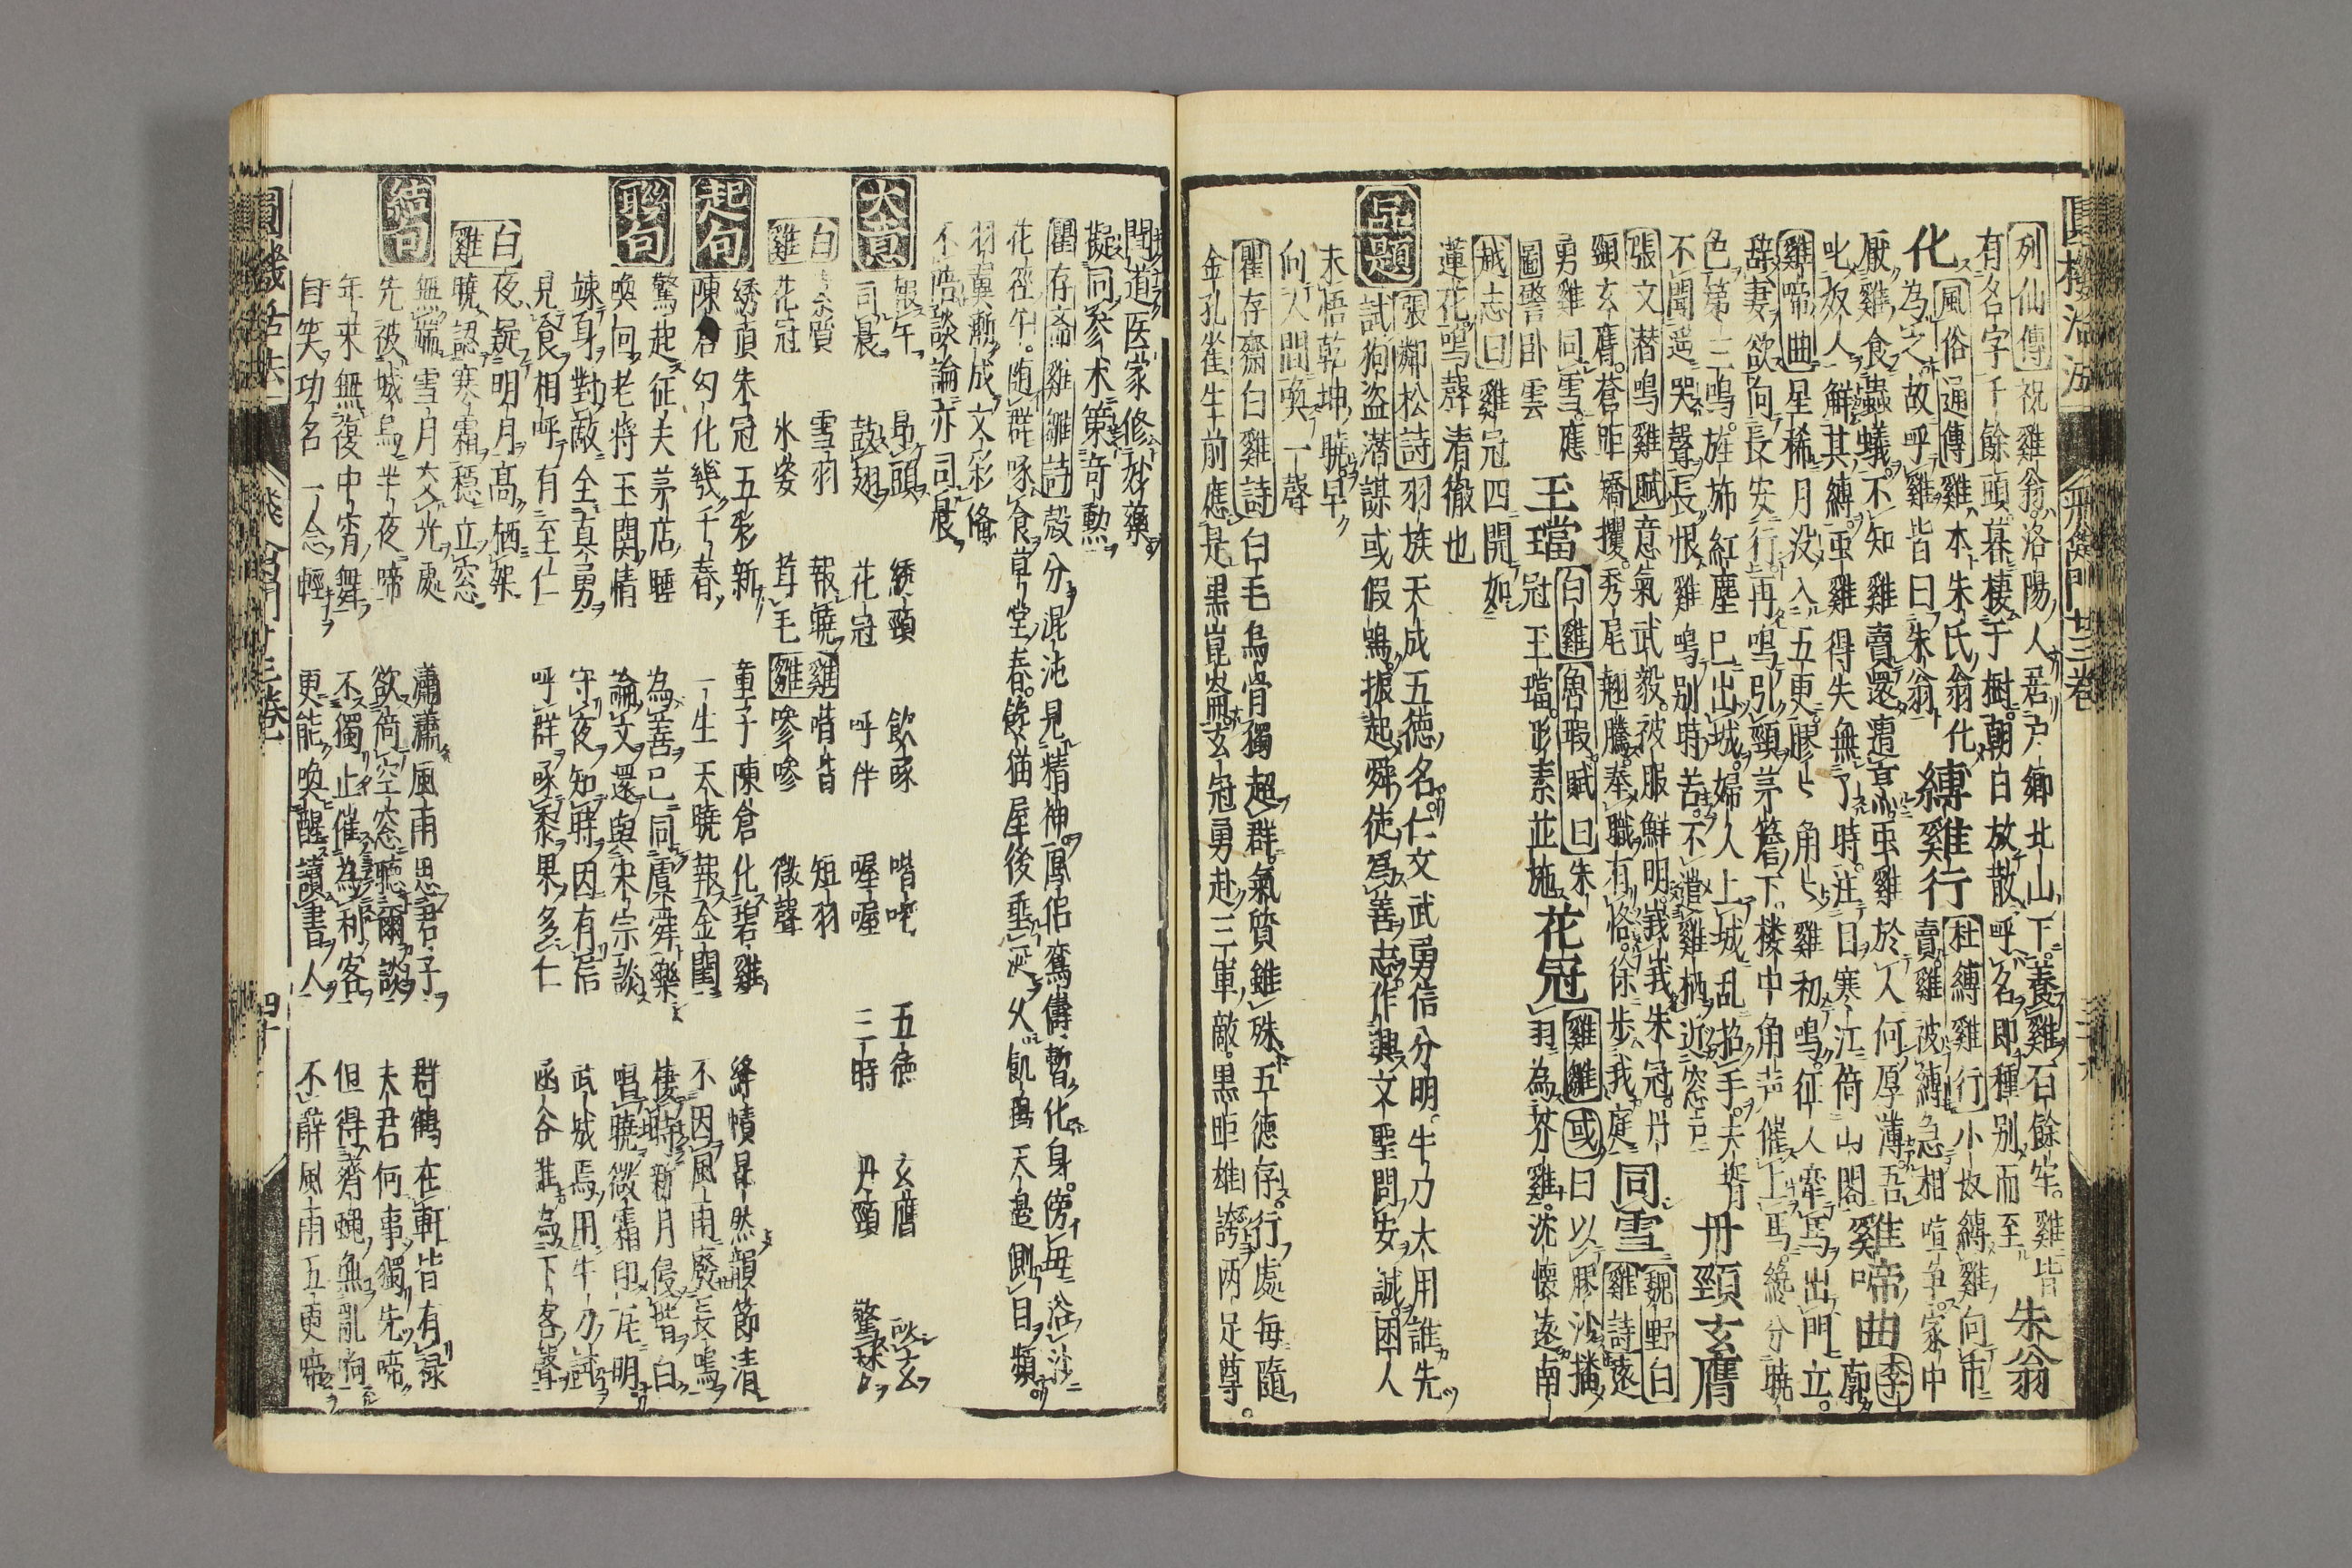 列仙傳祝雞翁洛陽人居尸鄉北山下養雞百餘年雞皆
有名字千餘頭暮棲于樹朝白放散呼名即種別而至 朱翁
化 風俗通傳雞本朱氏翁化
為之故呼雞皆曰朱翁 縛雞行 杜縛雞行小奴縛雞向市
賣雞被縛急相喧爭家中
厭雞食蟲蟻不知雞賣還遭烹虫雞於人何厚薄吾
叱奴人解其縛虫雞得失無了時注目寒江倚山閣 雞啼曲 李廓
雞啼曲星稀月没入五更膠々角々雞初鳴征人牽馬出門立
辞妻欲向長安行再鳴引頸茅簷下楼中角声催上馬纔分曉
色第三鳴旌斾紅塵已出城婦人上城乱招手夫壻
不聞遥哭聲長恨雞鳴别時苦不遣雞栖近窓戸 丹頸玄膺
張文潜鳴雞賦意氣武毅被服鮮明峩峩朱冠丹
頸玄膺蒼距矯攫秀尾翹騰奉職有恪徐步我庭 同雪 魏野白
雞詩遠
勇雞同雪應
圖警卧雲 玉璫 白雞魯瑕賦曰朱
冠玉璫彤素並施 花冠 雞雛或曰以膠沙播
羽為芥雞沈懐遠南
越志曰雞冠四開如
蓮花鳴聲清徹也
品題 張鄰松詩羽族天成五徳名仁文武勇信分明牛刀大用誰先
試狗盗潜謀或假鳴振起舜徒為善志作興文聖問安誠困人
未悟乾坤曉早
向人間喚一聲
瞿存齋白雞詩白毛烏骨獨超群氣質雖殊五徳存行處每隨
金孔雀生前應是黒崑崙玄冠勇赴三軍敵黒距雄誇两足尊
聞道医家修妙藥
擬同参术策奇勲
瞿存斎雞雛詩殻分混沌見精神鳳侣鸞儔暫化身傍母浴沙
花徑午随群啄食草堂春饞猫屋後垂涎火飢鳥天邊側目頻
羽翼漸成文彩俻
不陪談論亦司晨
大意 報午 昂頭 綉頸 飲啄 喈咜 五徳 玄膺 談玄
司晨 鼓翅 花冠 呼伴 喔喔 三時 丹頸 警栄
白雞 素質 雪羽 報曉 雞雛 喈皆 短羽
花冠 氷姿 茸毛 嘇嘇 微聲
起句 綉頂朱冠五彩新 童子陳倉化碧雞 絳幘昂然韻節清
陳倉幻化幾千春 一生天曉報金閨 不因風雨廢長鳴
聯句 驚起征夫茅店睡 為善已同虞舜樂 棲時新月侵皆白
喚回老将玉関情 論文還與宋宗談 唱曉微霜印瓦明
竦身對敵全真勇 守夜知時因有信 武城焉用牛刀試
見食相呼有至仁 呼群啄黍果多仁 函谷誰為下客聲
白雞 夜疑明月髙栖架
曉認寒霜穏立窓
結句 無端雪月交光處 瀟瀟風雨思君子 群鶴在軒皆有禄
先被城烏半夜啼 欲倚空窓聴爾談 夫君何事獨先啼
年来無復中宵舞 不獨止催為利客 但得齊蝿無亂向
自笑功名一念輕 更能喚醒讀書人 不辭風雨五更啼
圓機活法 飛禽門廿三巻 四十